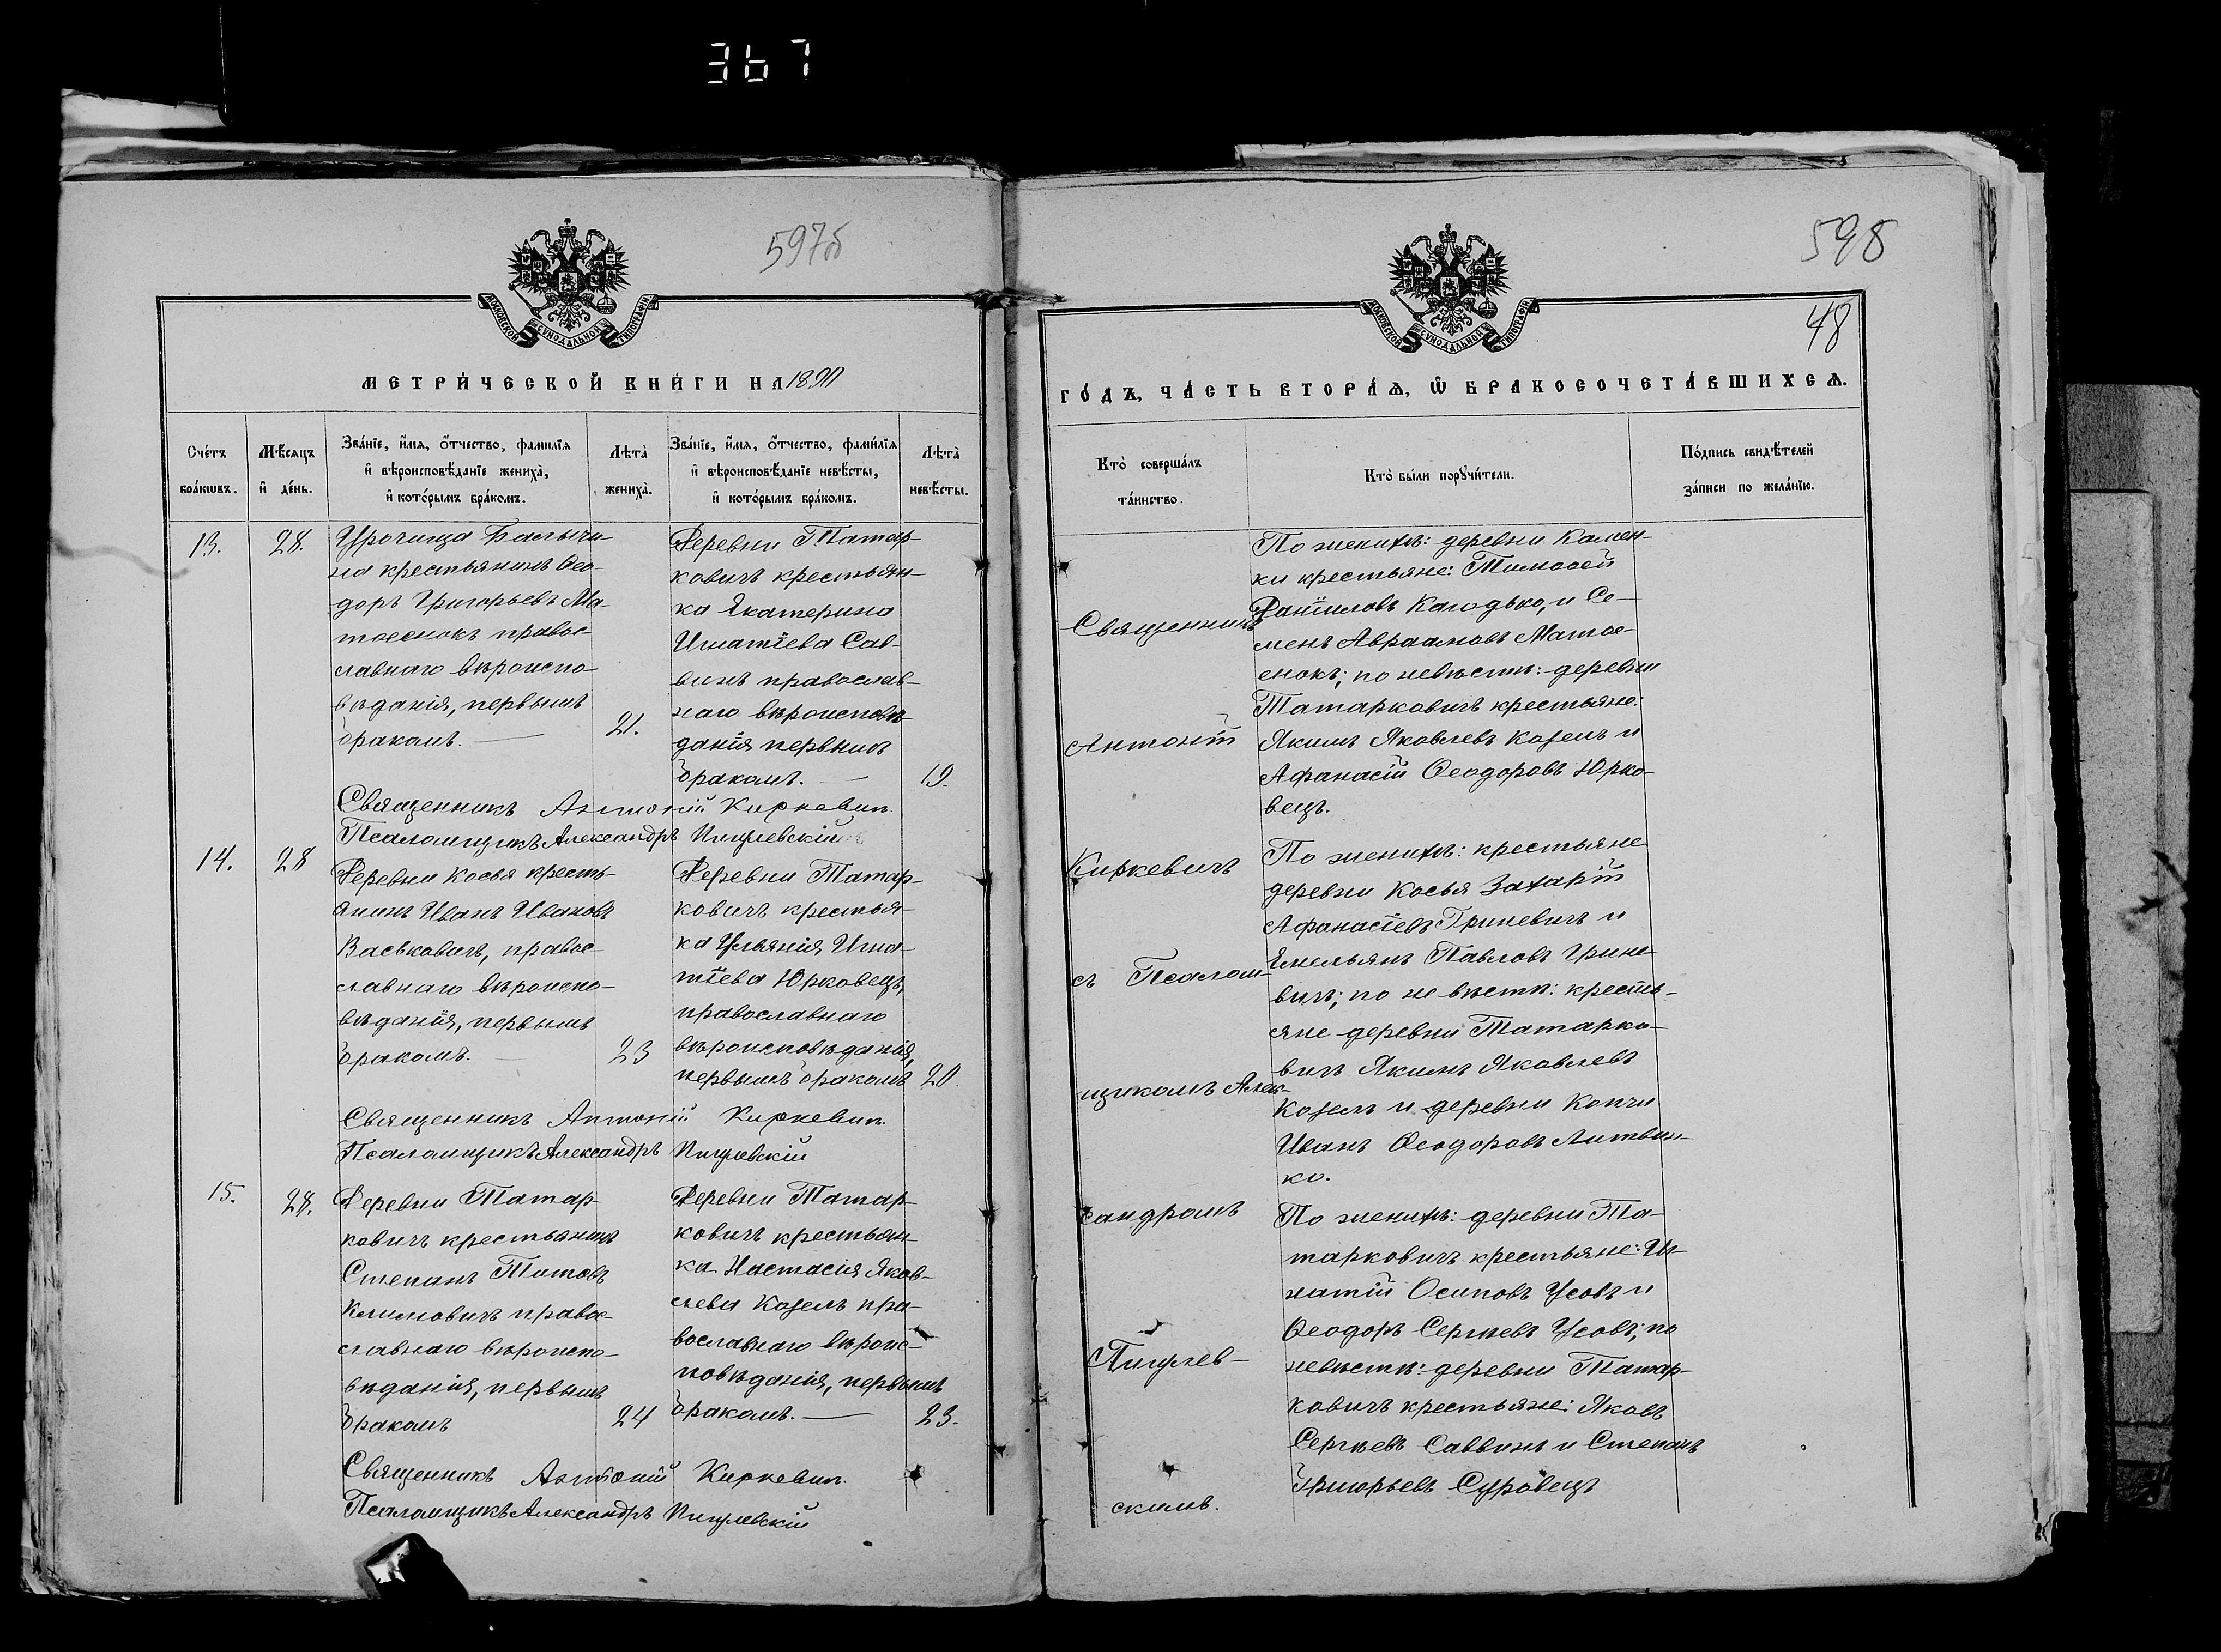 367
597об
МОСКОВСКОЙ СѴНОДАЛЬНОЙ ТИПОГРАФІИ
МЕТРИ́ЧЕСКОЙ КНИ́ГИ НА
Сче́тъ бра́кωвъ.
Мѣ́сяцъ и҆ де́нь.
Зва́нїе, и҆́мя, ѻ҆́тчество, фамилїя
и҆ вѣроисповѣ́данїе жениха̀,
и҆ кото́рымъ бра́комъ.
Лѣта̀ жениха̀.
Зва́нїе, и҆́мя, ѻ҆́тчество, фами́лїя
и҆ вѣроисповѣ́данїе невѣ́сты,
и҆ кото́рымъ бра́комъ.
Лѣта̀ невѣ́сты.
13.
28.
Урочища Балычи-
на крестьянинъ Ѳео-
доръ Григорьевъ Ма-
тоеенокъ правос-
лавнаго вѣроиспо-
вѣданія, первымъ
бракомъ. —
21.
Деревни Татар-
ковичъ крестьян-
ка Екатерина
Игнатіева Сав-
винъ православ-
наго вѣроисповѣ-
данія первымъ
бракомъ. —
19.
Священникъ Антоній Киркевичъ.
Псаломщикъ Александръ Пигулевскій
14.
28
Деревни Косья кресть-
янинъ Иванъ Ивановъ
Васьковичъ, правос-
лавнаго вѣроиспо-
вѣданія, первымъ
бракомъ. —
23
Деревни Татар-
ковичъ крестья-
ка Ульянія Игна-
тіева Юрковецъ,
православнаго
вѣроисповѣданія,
первымъ бракомъ
20.
Священникъ Антоній Киркевичъ.
Псаломщикъ Александръ Пигулевскій
15.
28.
Деревни Татар-
ковичъ крестьянинъ
Степанъ Титовъ
Климовичъ правос-
лавнаго вѣроиспо-
вѣданія, первымъ
бракомъ
24
Деревни Татар-
ковичъ крестьян-
ка Настасія Яков-
лева Козелъ пра-
вославнаго вѣроис-
повѣданія, первымъ
бракомъ. —
23.
Священникъ Антоній Киркевичъ.
Псаломщикъ Александръ Пигулевскій
598
48
МОСКОВСКОЙ СѴНОДАЛЬНОЙ ТИПОГРАФІИ
ГО́ДЪ, ЧА́СТЬ ВТОРА́Я, Ѽ БРАКОСОЧЕТА́ВШИХСЯ.
Кто̀ соверша́лъ
та́инство.
Кто̀ бы́ли порꙋчи́тели.
По́дпись свидѣ́телей
за́писи по жела́нїю.
Священникъ
Антоній
Киркевичъ
съ Псалом-
щикомъ Алек-
сандромъ
Пигулев-
скимъ.
По женихѣ: деревни Камен-
ки крестьяне: Тимоѳей
Даніиловъ Кагодько, и Се-
менъ Авраамовъ Матое-
енокъ; по невѣстѣ: деревни
Татарковичъ крестьяне:
Якимъ Яковлевъ Козелъ и
Афанасій Ѳеодоровъ Юрко-
вецъ.
По женихѣ: крестьяне
деревни Косья Захарій
Афанасіевъ Гриневичъ и
Емельянъ Павловъ Грине-
вичъ; по невѣстѣ: кресть-
яне деревни Татарко-
вичъ Якимъ Яковлевъ
Козелъ и деревни Копчи
Иванъ Ѳеодоровъ Литвин-
ко.
По женихѣ: деревни Та-
тарковичъ крестьяне: Иг-
натій Осиповъ Усовъ и
Ѳеодоръ Сергѣевъ Усовъ; по
невѣстѣ: деревни Татар-
ковичъ крестьяне: Яковъ
Сергѣевъ Саввинъ и Степанъ
Григорьевъ Суровецъ